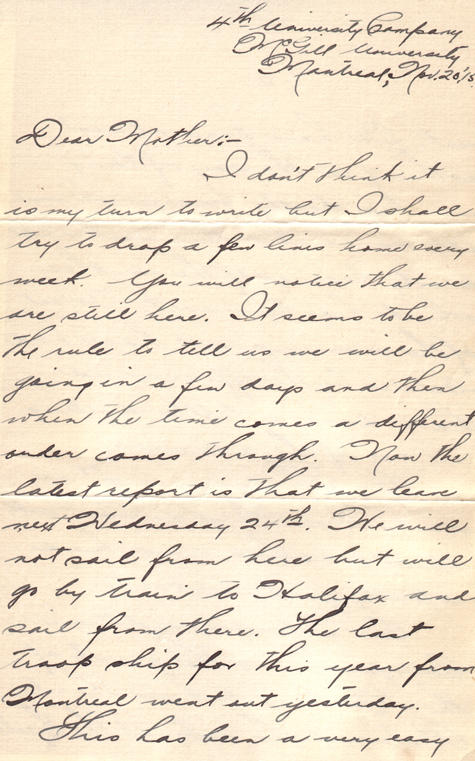 4th University Company
McGill University
Montreal, Nov. 20/15.
Dear Mother:-
I don't think it
is my turn to write but I shall
try to drop a few lines home every
week. You will notice that we
are still here. It seems to be
the rule to tell us we will be
going in a few days and then
when the time comes a different
order comes through. Now the
latest report is that we leave
next Wednesday 24th. We will
not sail from here but will
go by train to Halifax and
sail from there. The last
troop ship for this year from
Montreal went out yesterday.
This has been a very easy